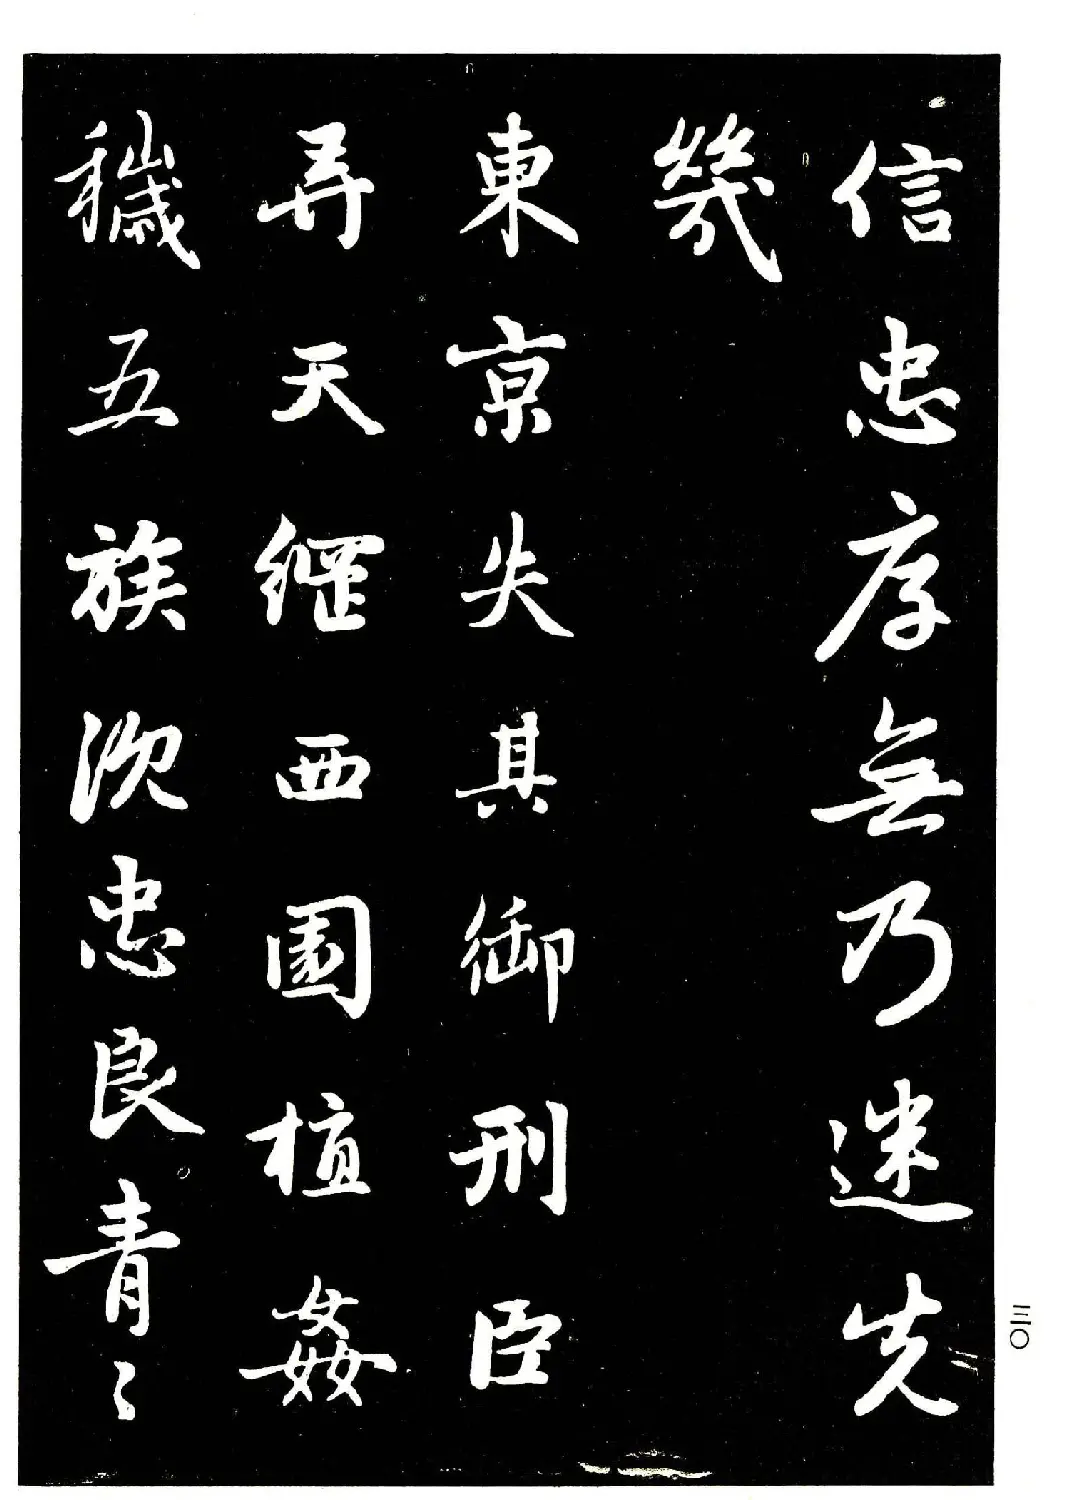 信忠厚無乃迷先
幾
東京失其御刑臣
弄天綱西園植姦
穢五族沉忠良青々
三〇